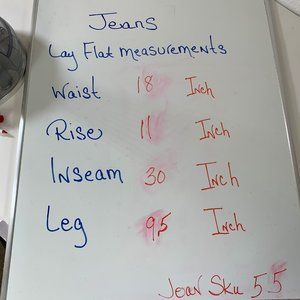 Jeans
Lay Flat measurements
Waist 18 Inch
Rise 11 Inch
Inseam 30 Inch
Leg 9,5 Inch
Jean Sku 5.5